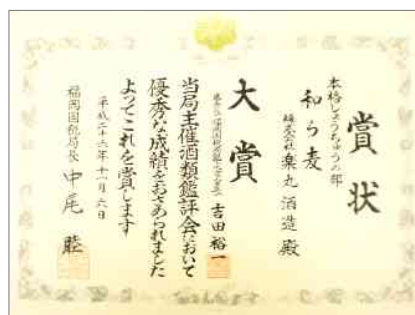 賞状
本格しょうちゅうの部
和ら麦
株式会社楽丸酒造 殿
大賞
吉田裕一
当局主催酒類鑑評会において
優秀な成績をおさめられました
よってこれを賞します
平成二十六年十一月六日
福岡国税局長 中尾 睦